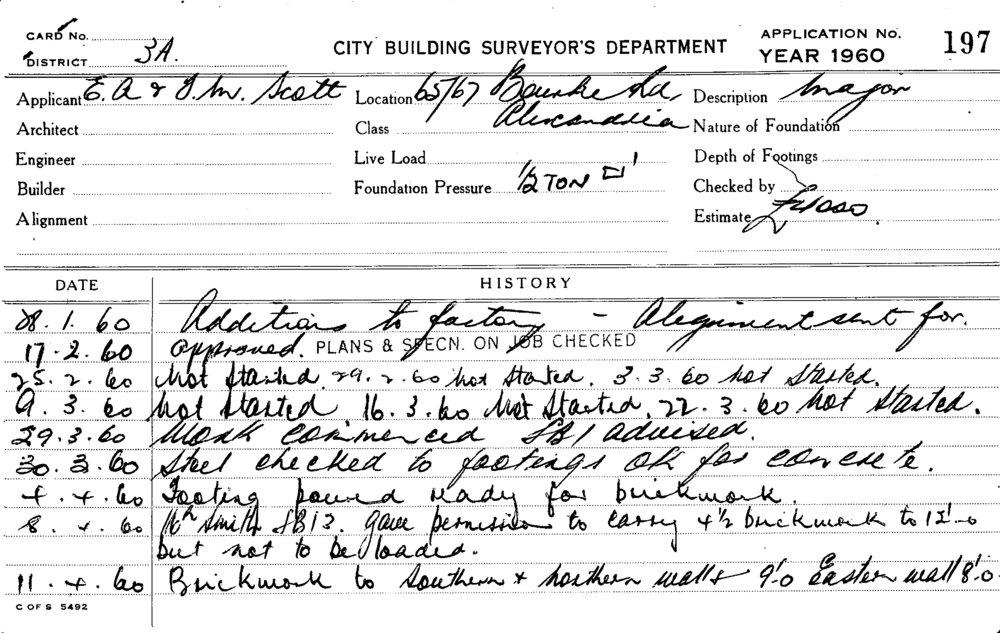 CARD No.
DISTRICT 3A.
CITY BUILDING SURVEYOR'S DEPARTMENT
APPLICATION No. 197
YEAR 1960
Applicant E. A & J. M. Scott Location 65/67 Bourke Rd, Description Major
Alexandria
Architect Class Nature of Foundation
Engineer Live Load Depth of Footings
Builder Foundation Pressure 1/2 TON □' Checked by
Alignment Estimate
DATE HISTORY
28.1.60 Additions to factory - Alignment sent for.
17.2.60 Approved. PLANS & SPECN. ON JOB CHECKED
25.2.60 Not Started. 29.2.60 Not Started. 3.3.60 Not Started.
9.3.60 Not Started 16.3.60 Not Started. 22.3.60 Not Started.
29.3.60 Work commenced SB1 advised.
30.3.60 Steel checked to footings OK for concrete.
4.4.60 Footing poured ready for brickwork.
8.4.60 Mr Smith SB13. gave permission to carry 4½ brickwork to 12'-0
but not to be loaded.
11.4.60 Brickwork to Southern & Northern walls 9'0 Eastern wall 8'0.
C OF S 5492